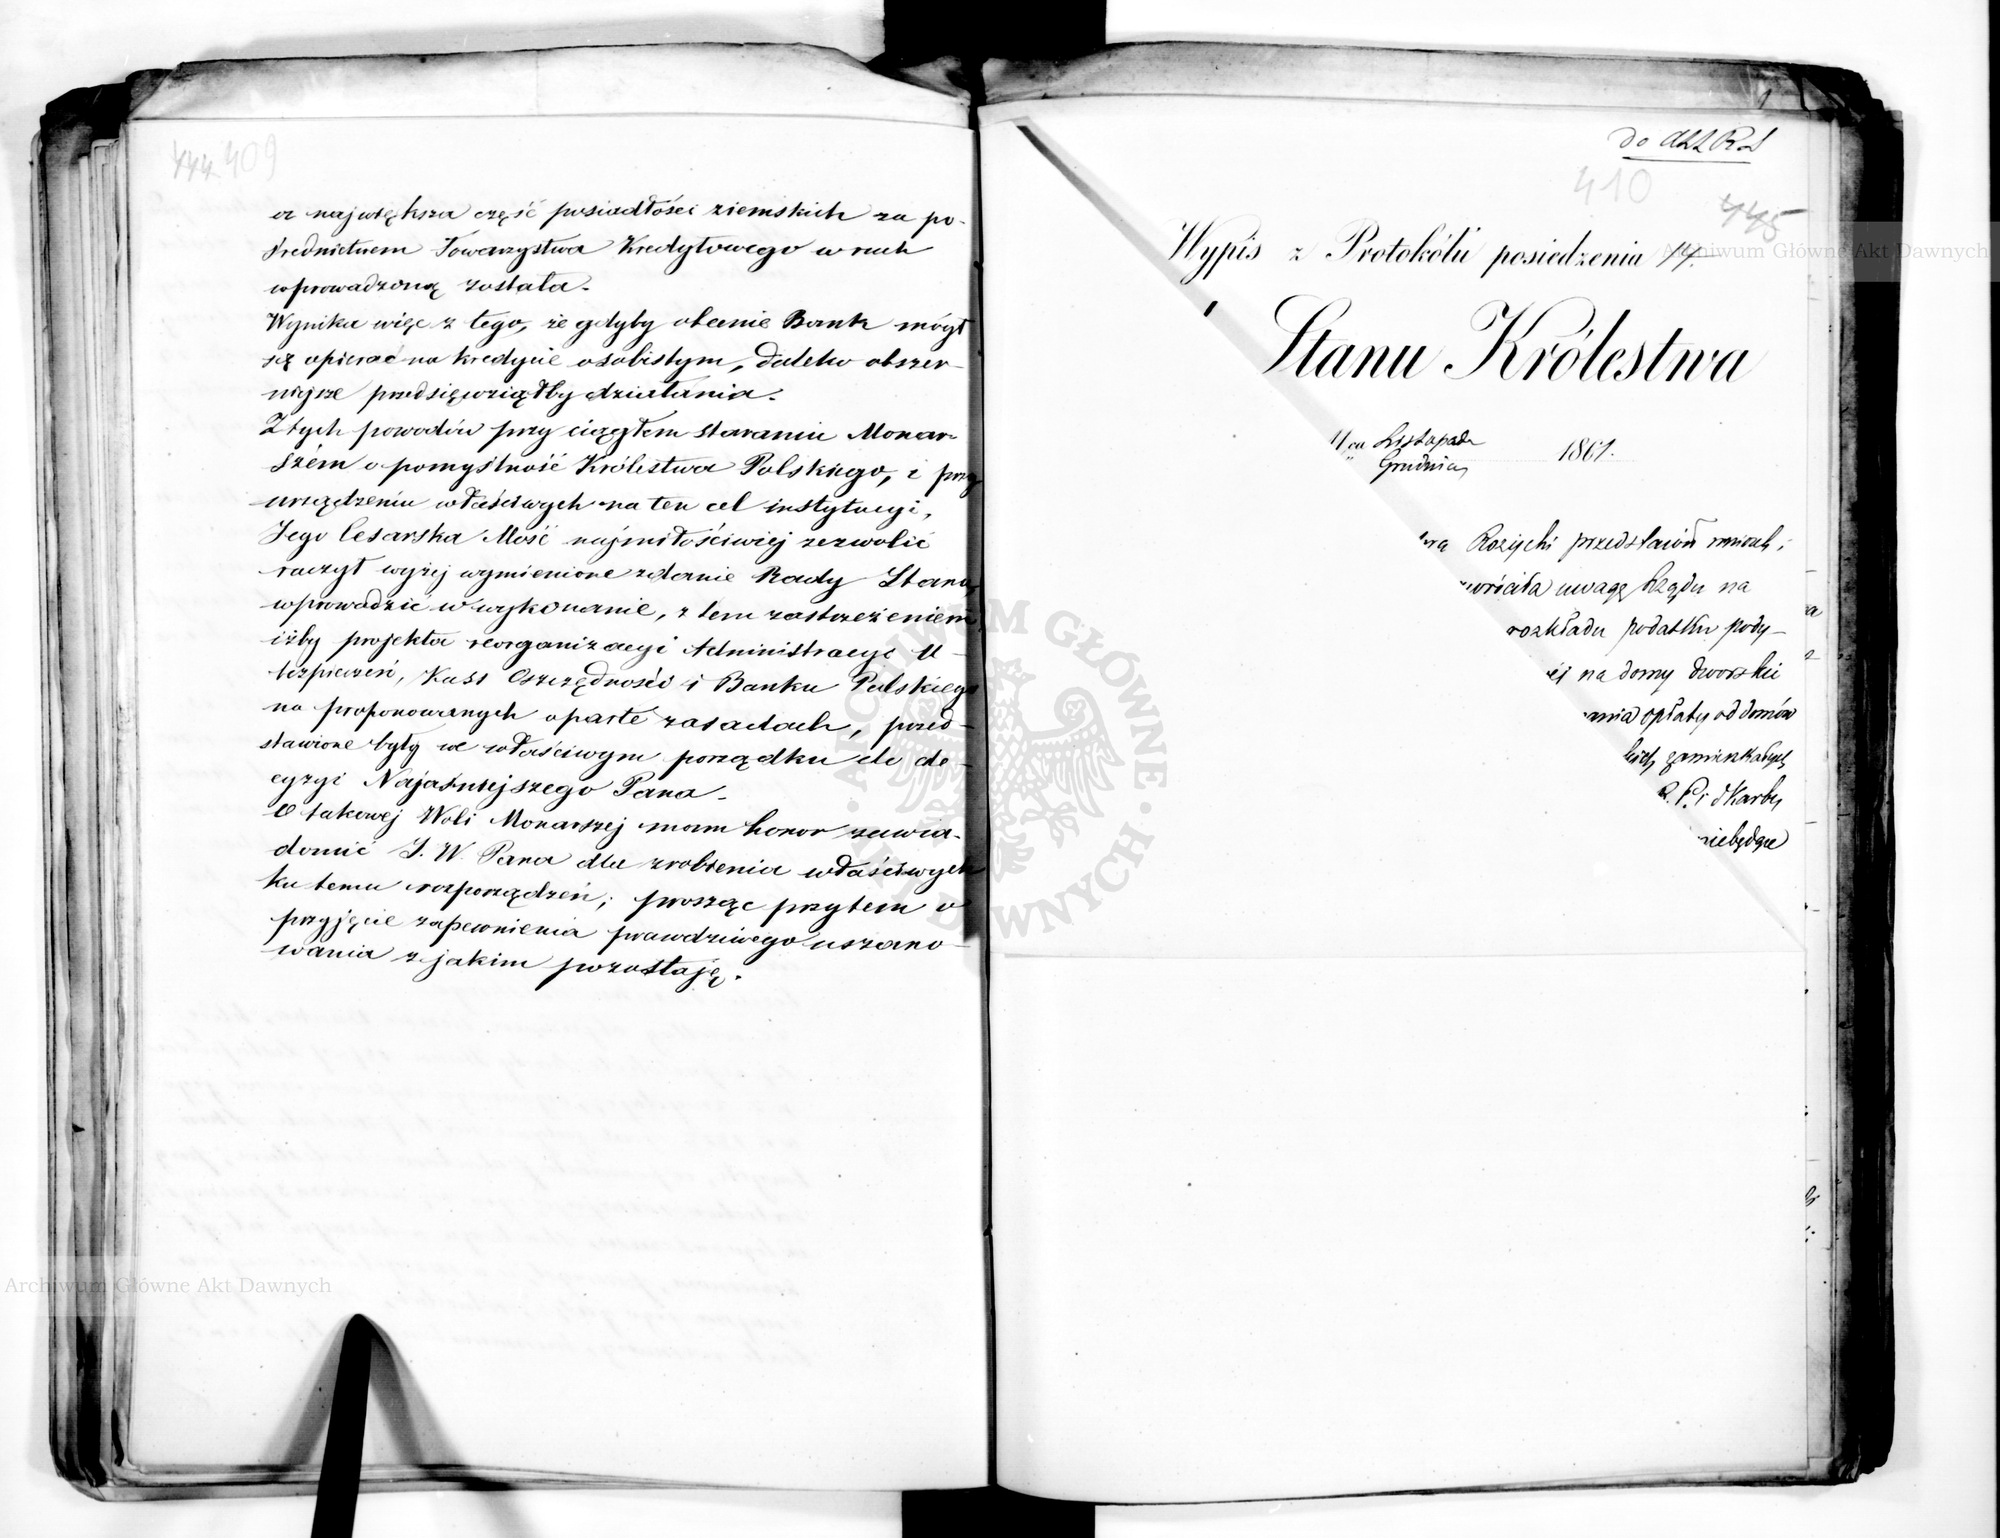 444. 409
a największa część posiadłości ziemskich za po-
średnictwem Towarzystwa Kredytowego w ruch
wprowadzoną została.
Wynika więc z tego, że gdyby obecnie Bank mógł
się opierać na kredycie osobistym, daleko obszer-
niejsze przedsięwziąłby działania.
Z tych powodów przy ciągłem staraniu Monar-
szém o pomyślność Królestwa Polskiego, i przy
urządzeniu właściwych na ten cel instytucyi,
Jego Cesarska Mość najmiłościwiej zezwolić
raczył wyżej wymienione zdanie Rady Stanu,
wprowadzić w wykonanie, z tem zastrzeżeniem
iżby projekta reorganizacyi Administracyi U-
bezpieczeń, Kass Oszczędności i Banku Polskiego
na proponowanych oparte zasadach, przed-
stawione były we właściwym porządku do de-
cyzyi Najaśniejszego Pana.
O takowej Woli Monarszej mam honor zawia-
domić J. W. Pana dla zrobienia właściwych
ku temu rozporządzeń, prosząc przytem o
przyjęcie zapewnienia prawdziwego uszano-
wania z jakim pozostaję.
Do
410
445
Wypis z Protokółu posiedzenia 14.
Stanu Królestwa
Listopada
Grudnia 1861.
Rozycki przedstawił wniosek,
wróciła uwagę Rządu na
rozkładu podatku pody-
na domy dworskie
ania opłaty od domów
zamieszkałych
R. P. i Skarbu
niebędące
Archiwum Główne Akt Dawnych
Archiwum Główne Akt Dawnych
ARCHIWUM GŁÓWNE AKT DAWNYCH